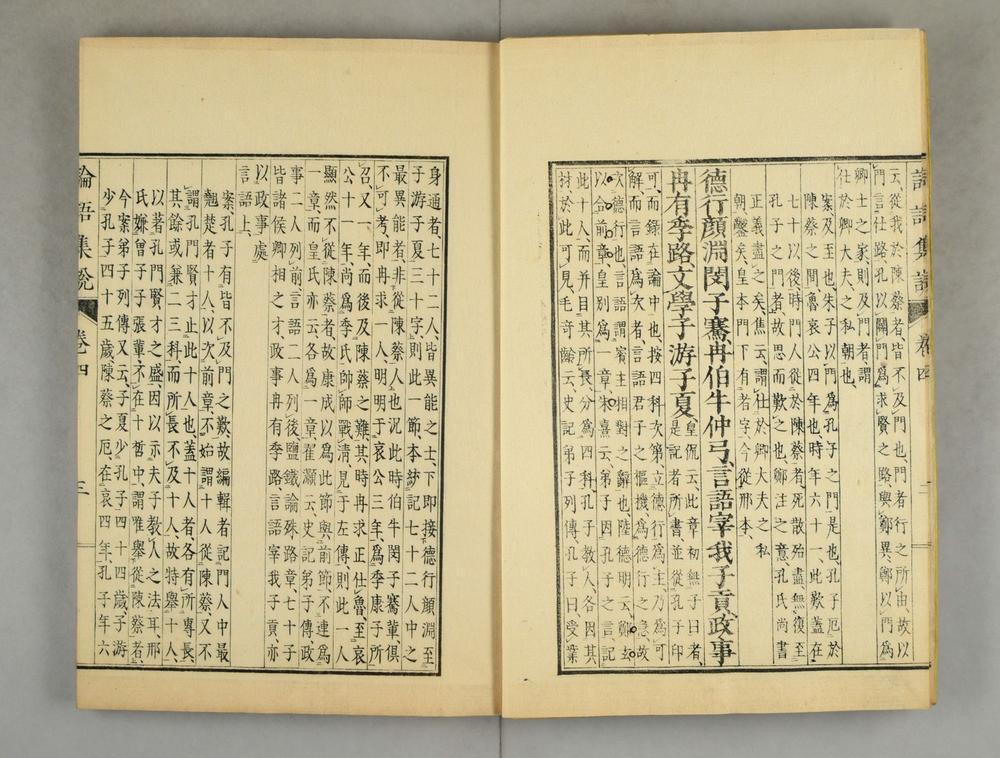 論語集說 卷四 二
云、從我於陳蔡者、皆不及門也、門者行之所由、故以
門言仕路、孔以闢門爲求賢之路與、鄭異、鄭以門爲
卿士之家、則及門者、謂
仕於卿大夫之私朝也、
案及至也、朱子以門爲孔子之門是也、孔子厄於
陳蔡之間、魯哀公四年也、時年六十一、此歎蓋在
七十以後、時門人從於陳蔡者、死散殆盡、無復至
孔子之門者、故思而歎之也、鄭注之意、孔氏尚書
正義盡之矣、焦云、謂仕於卿大夫之私
朝鑿矣、皇本門下有者字、今從邢本、
德行顏淵閔子騫、冉伯牛仲弓、言語宰我子貢、政事
冉有季路、文學子游子夏、
皇侃云、此章初無子曰者、
是記者所書、並從孔子印
可、而錄在論中也、按四科次第、立德行爲主、乃爲可
解、而言語爲次者、言語君子之樞機、爲德行之急、故
次德行也、言語謂賓主相對之辭也、陸德明云、鄭玄
以合前章、皇別爲一章、朱熹云、弟子因孔子之言、記
此十人、而并目其所長、分爲四科、孔子教人、各因其
材、於此可見、毛奇齡云、史記弟子列傳、孔子曰、受業
身通者、七十二人、皆異能之士、下卽接德行顏淵至
子游子夏三十字、則此一節、本紗記七十二人中之
最異能者、非從陳蔡人也、況此時伯牛閔子騫輩、俱
不可考、卽冉求一人、明明于哀公三年、爲季康子所
召、又一年、而後及陳蔡之難、其時冉求正仕魯、至哀
公十一年、尚爲季氏師師戰淸、見于左傳、則此一人
顯然不從陳蔡者、故康成以爲此節與前節、不連爲
一章、而皇氏亦云、各爲一章、翟灝云、史記弟子傳、政
事二人列前、言語二人列後、鹽鐵論殊路章、七十子
皆諸侯卿相之才、政事冉有季路、言語宰我子貢、亦
以政事處
言語上、
案孔子有皆不及門之歎、故編輯者記門人中最
翹楚者十人、以次前章、不始謂十人從陳蔡、又不
謂孔門賢才止此十人也、蓋十人者、各有所專長、
其餘或兼二三科、而所長不及十人、故特舉十人、
以著孔門賢才之盛、因以示夫子教人之法耳、邢
氏嫌曾子子張輩不在十哲中、謂唯舉從陳蔡者、
今案弟子列傳又云、子夏少孔子四十四歲、子游
少孔子四十五歲、陳蔡之厄、在哀四年、孔子年六
論語集說 卷四 三